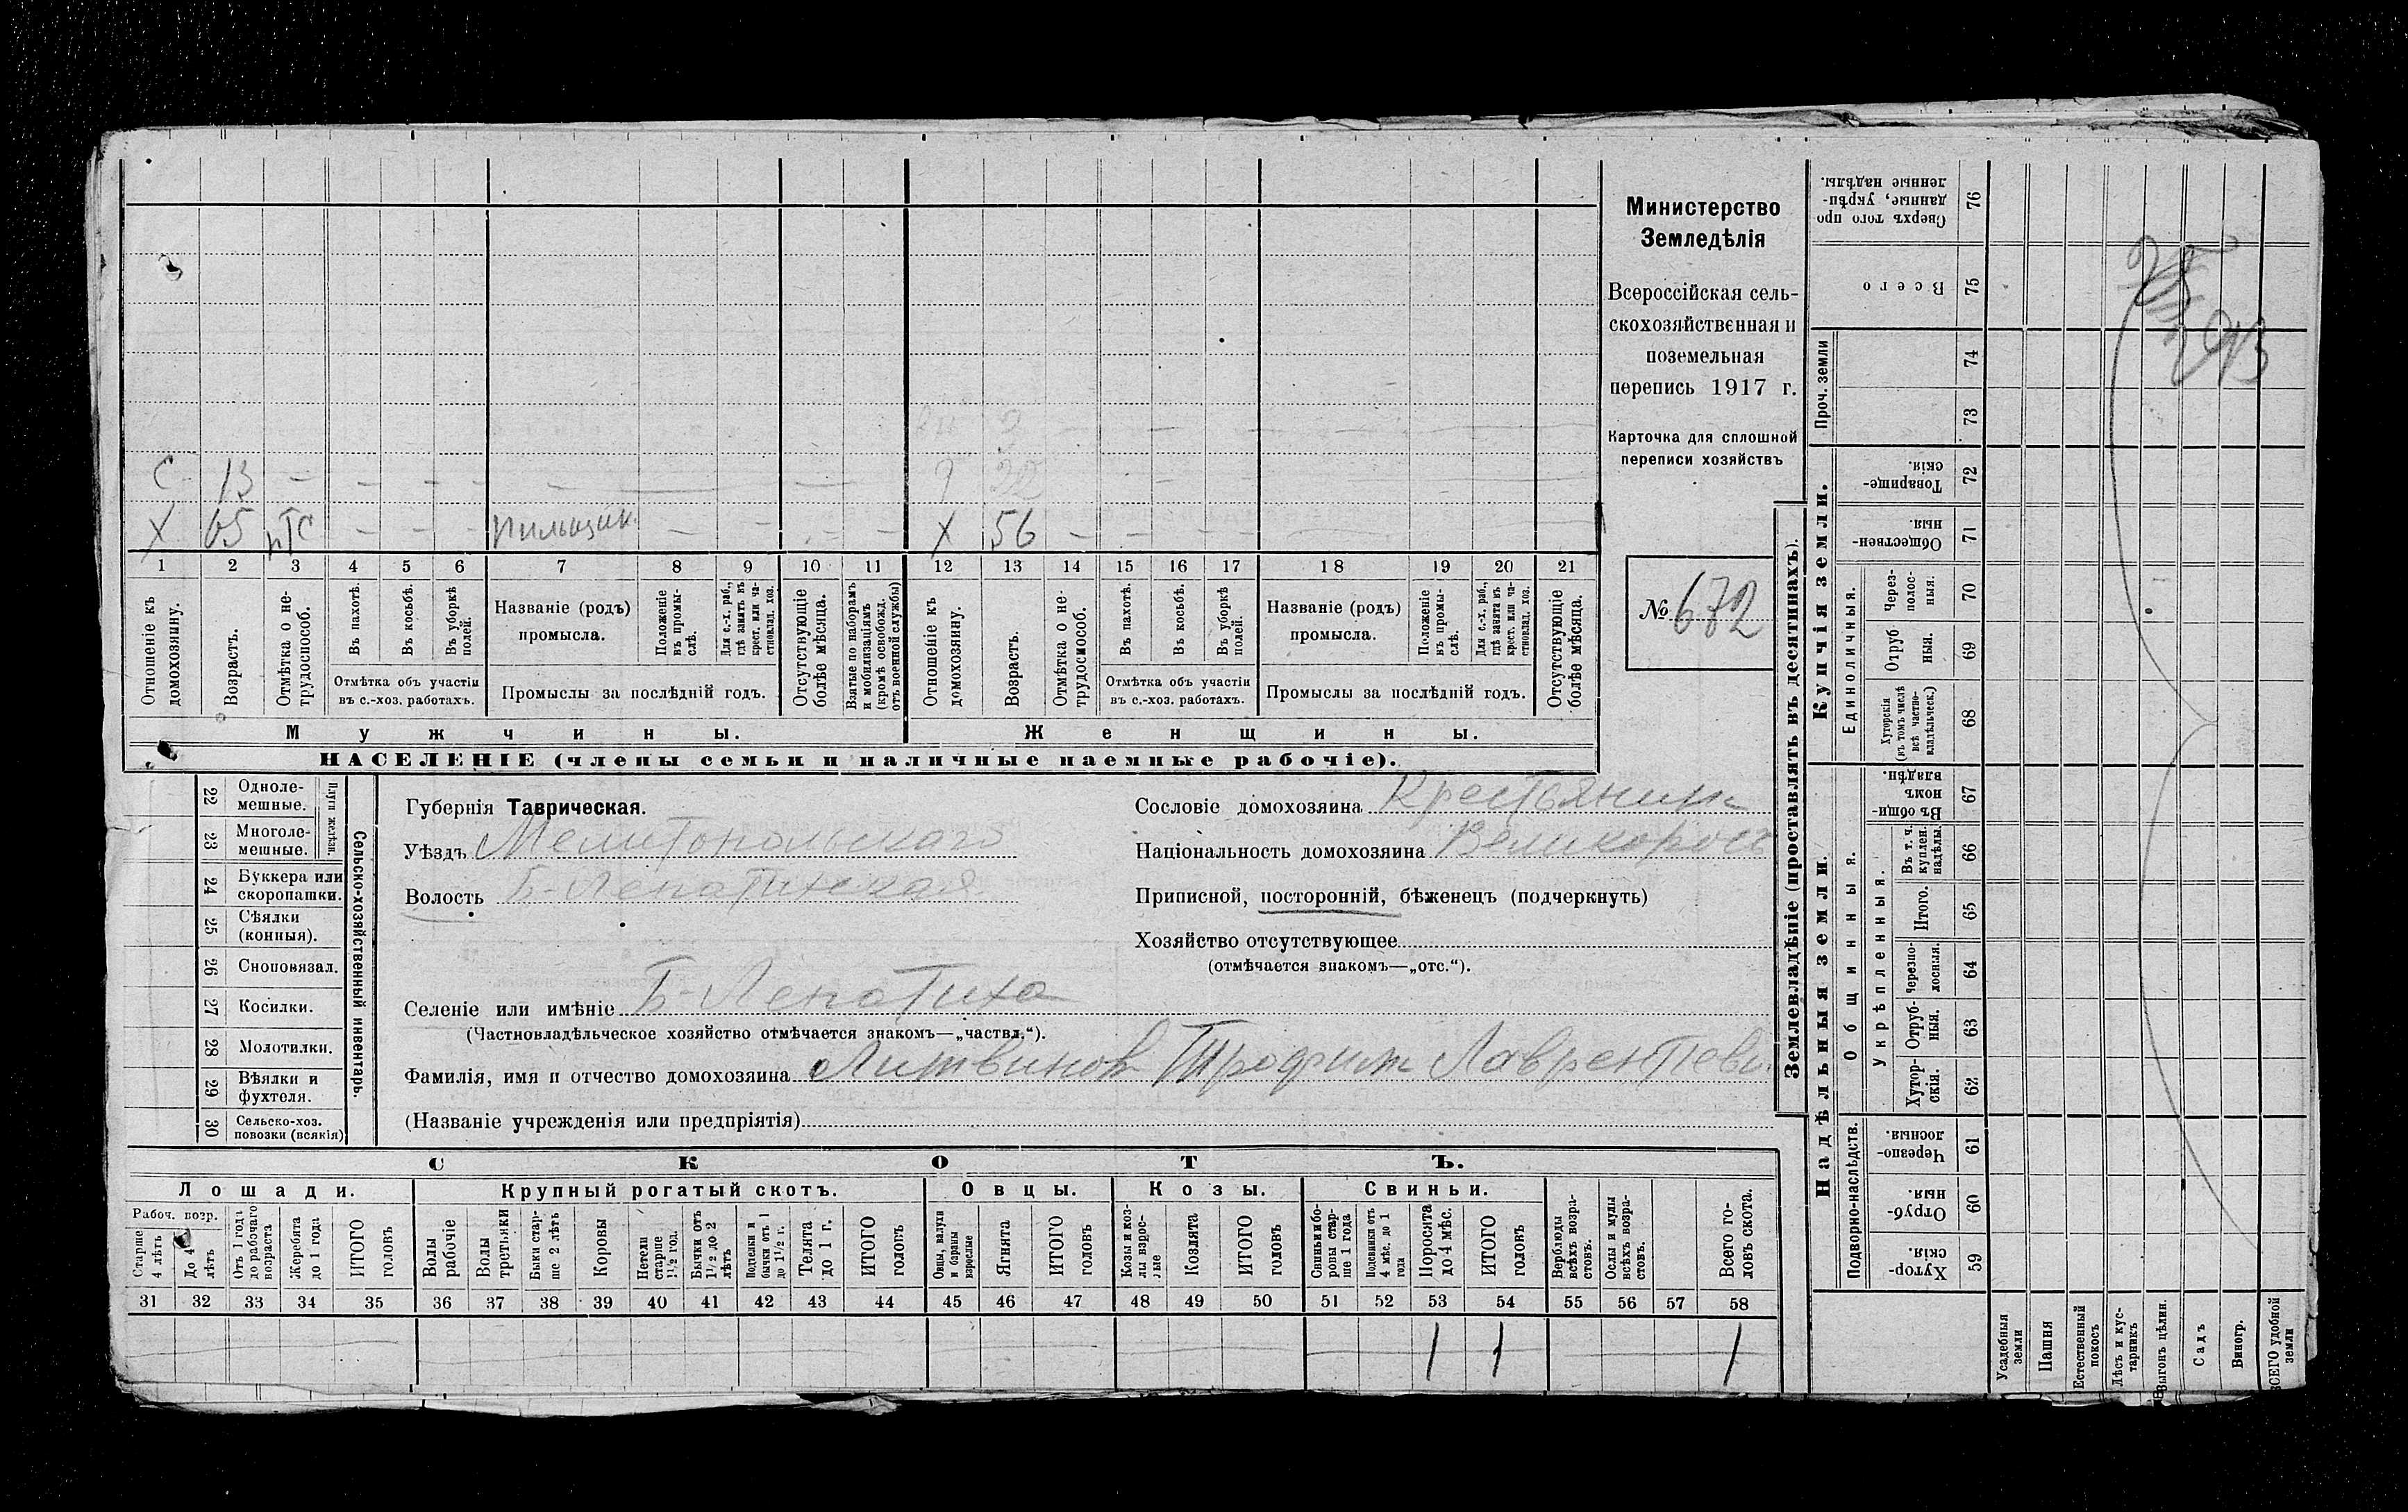 С 13 — — — — — — — — —
Х 65 — — — Пильщик — — — — Х 56 — — — — — — — —
1 2 3 4 5 6 7 8 9 10 11 12 13 14 15 16 17 18 19 20 21
Отношеніе къ домохозяину.
Возрастъ.
Отмѣтка о не-
трудоспособ.
Въ пахотѣ.
Въ косьбѣ.
Въ уборкѣ полей.
Отмѣтка объ участіи
въ с.-хоз. работахъ.
Названіе (родъ)
промысла.
Положеніе въ промы-
слѣ.
Для с.-х. раб., гдѣ занятъ въ крест. или ча-
стновлад. хоз.
Промыслы за послѣдній годъ.
Отсутствующіе болѣе мѣсяца.
Взятые по наборамъ и мобилизаціямъ (кромѣ освобожд. отъ военной службы)
Отношеніе къ домохозяину.
Возрастъ.
Отмѣтка о не-
трудоспособ.
Въ пахотѣ.
Въ косьбѣ.
Въ уборкѣ полей.
Отмѣтка объ участіи
въ с.-хоз. работахъ.
Названіе (родъ)
промысла.
Положеніе въ промы-
слѣ.
Для с.-х. раб., гдѣ занята въ крест. или ча-
стновлад. хоз.
Промыслы за послѣдній годъ.
Отсутствующіе болѣе мѣсяца.
Мужчины.
Женщины.
НАСЕЛЕНІЕ (члены семьи и наличные наемные рабочіе).
Министерство
Земледѣлія
Всероссійская сель-
скохозяйственная и
поземельная
перепись 1917 г.
Карточка для сплошной
переписи хозяйствъ
№ 672
22 Одноле-
мешные.
23 Многоле-
мешные.
Плуги желѣзн.
24 Буккера или
скоропашки.
25 Сѣялки
(конныя).
26 Сноповязал.
27 Косилки.
28 Молотилки.
29 Вѣялки и
фухтеля.
30 Сельско-хоз.
повозки (всякія)
Сельско-хозяйственный инвентарь.
Губернія Таврическая.
Уѣздъ Мелитопольскаго
Волость Б-Лепатихская
Селеніе или имѣніе Б-Лепатиха
(Частновладѣльческое хозяйство отмѣчается знакомъ—„частвл.“).
Фамилія, имя и отчество домохозяина Литвинов Трофим Лаврентьев
(Названіе учрежденія или предпріятія)
Сословіе домохозяина Крестьянин
Національность домохозяина Великорос
Приписной, посторонній, бѣженецъ (подчеркнуть)
Хозяйство отсутствующее
(отмѣчается знакомъ—„отс.“).
СКОТЪ.
Лошади. Крупный рогатый скотъ. Овцы. Козы. Свиньи.
Рабоч. возр.
Старше 4 лѣтъ
До 4 лѣтъ
Отъ 1 года до рабочаго возраста
Жеребята до 1 года
ИТОГО головъ
Волы рабочіе
Волы третьяки
Быки стар-
ше 2 лѣтъ
Коровы
Нетели старше 1½ год.
Бычки отъ 1½ до 2 лѣтъ
Подтелки и бычки отъ 1 до 1½ г.
Телята до 1 г.
ИТОГО головъ
Овцы, валухи и бараны взрослые
Ягнята
ИТОГО головъ
Козы и коз-
лы взрос-
лые
Козлята
ИТОГО головъ
Свиньи и бо-
ровы стар-
ше 1 года
Подсвинки отъ 4 мѣс. до 1 года
Поросята до 4 мѣс.
ИТОГО головъ
Верблюды всѣхъ возра-
стовъ.
Ослы и мулы всѣхъ возра-
стовъ.
Всего го-
ловъ скота.
31 32 33 34 35 36 37 38 39 40 41 42 43 44 45 46 47 48 49 50 51 52 53 54 55 56 57 58
1 1 1
Землевладѣніе (проставлять въ десятинахъ).
Купчія земли.
Надѣльныя земли.
Сверхъ того про
данные, укрѣп-
ленные надѣлы.
76
Всего
75
Проч. земли
74
73
Товарище-
скія.
72
Обществен-
ныя.
71
Единоличныя.
Через-
полос-
ныя.
70
Отруб
ныя.
69
Хуторскія
(въ томъ числѣ
всѣ частно-
владѣльческ.)
68
Общинныя.
Въ общи
номъ
владѣн.
67
Укрѣпленныя.
Въ т. ч.
куплен.
надѣлы.
66
Итого.
65
Черезпо-
лосныя.
64
Отруб-
ныя.
63
Хутор-
скія.
62
Подворно-наслѣдств.
Черезпо-
лосныя.
61
Отруб-
ныя.
60
Хутор-
скія.
59
Усадебныя земли
Пашня
Естественный покосъ
Лѣсъ и кус-
тарникъ
Выгонъ цѣлин.
Садъ
Виногр.
ВСЕГО удобной земли